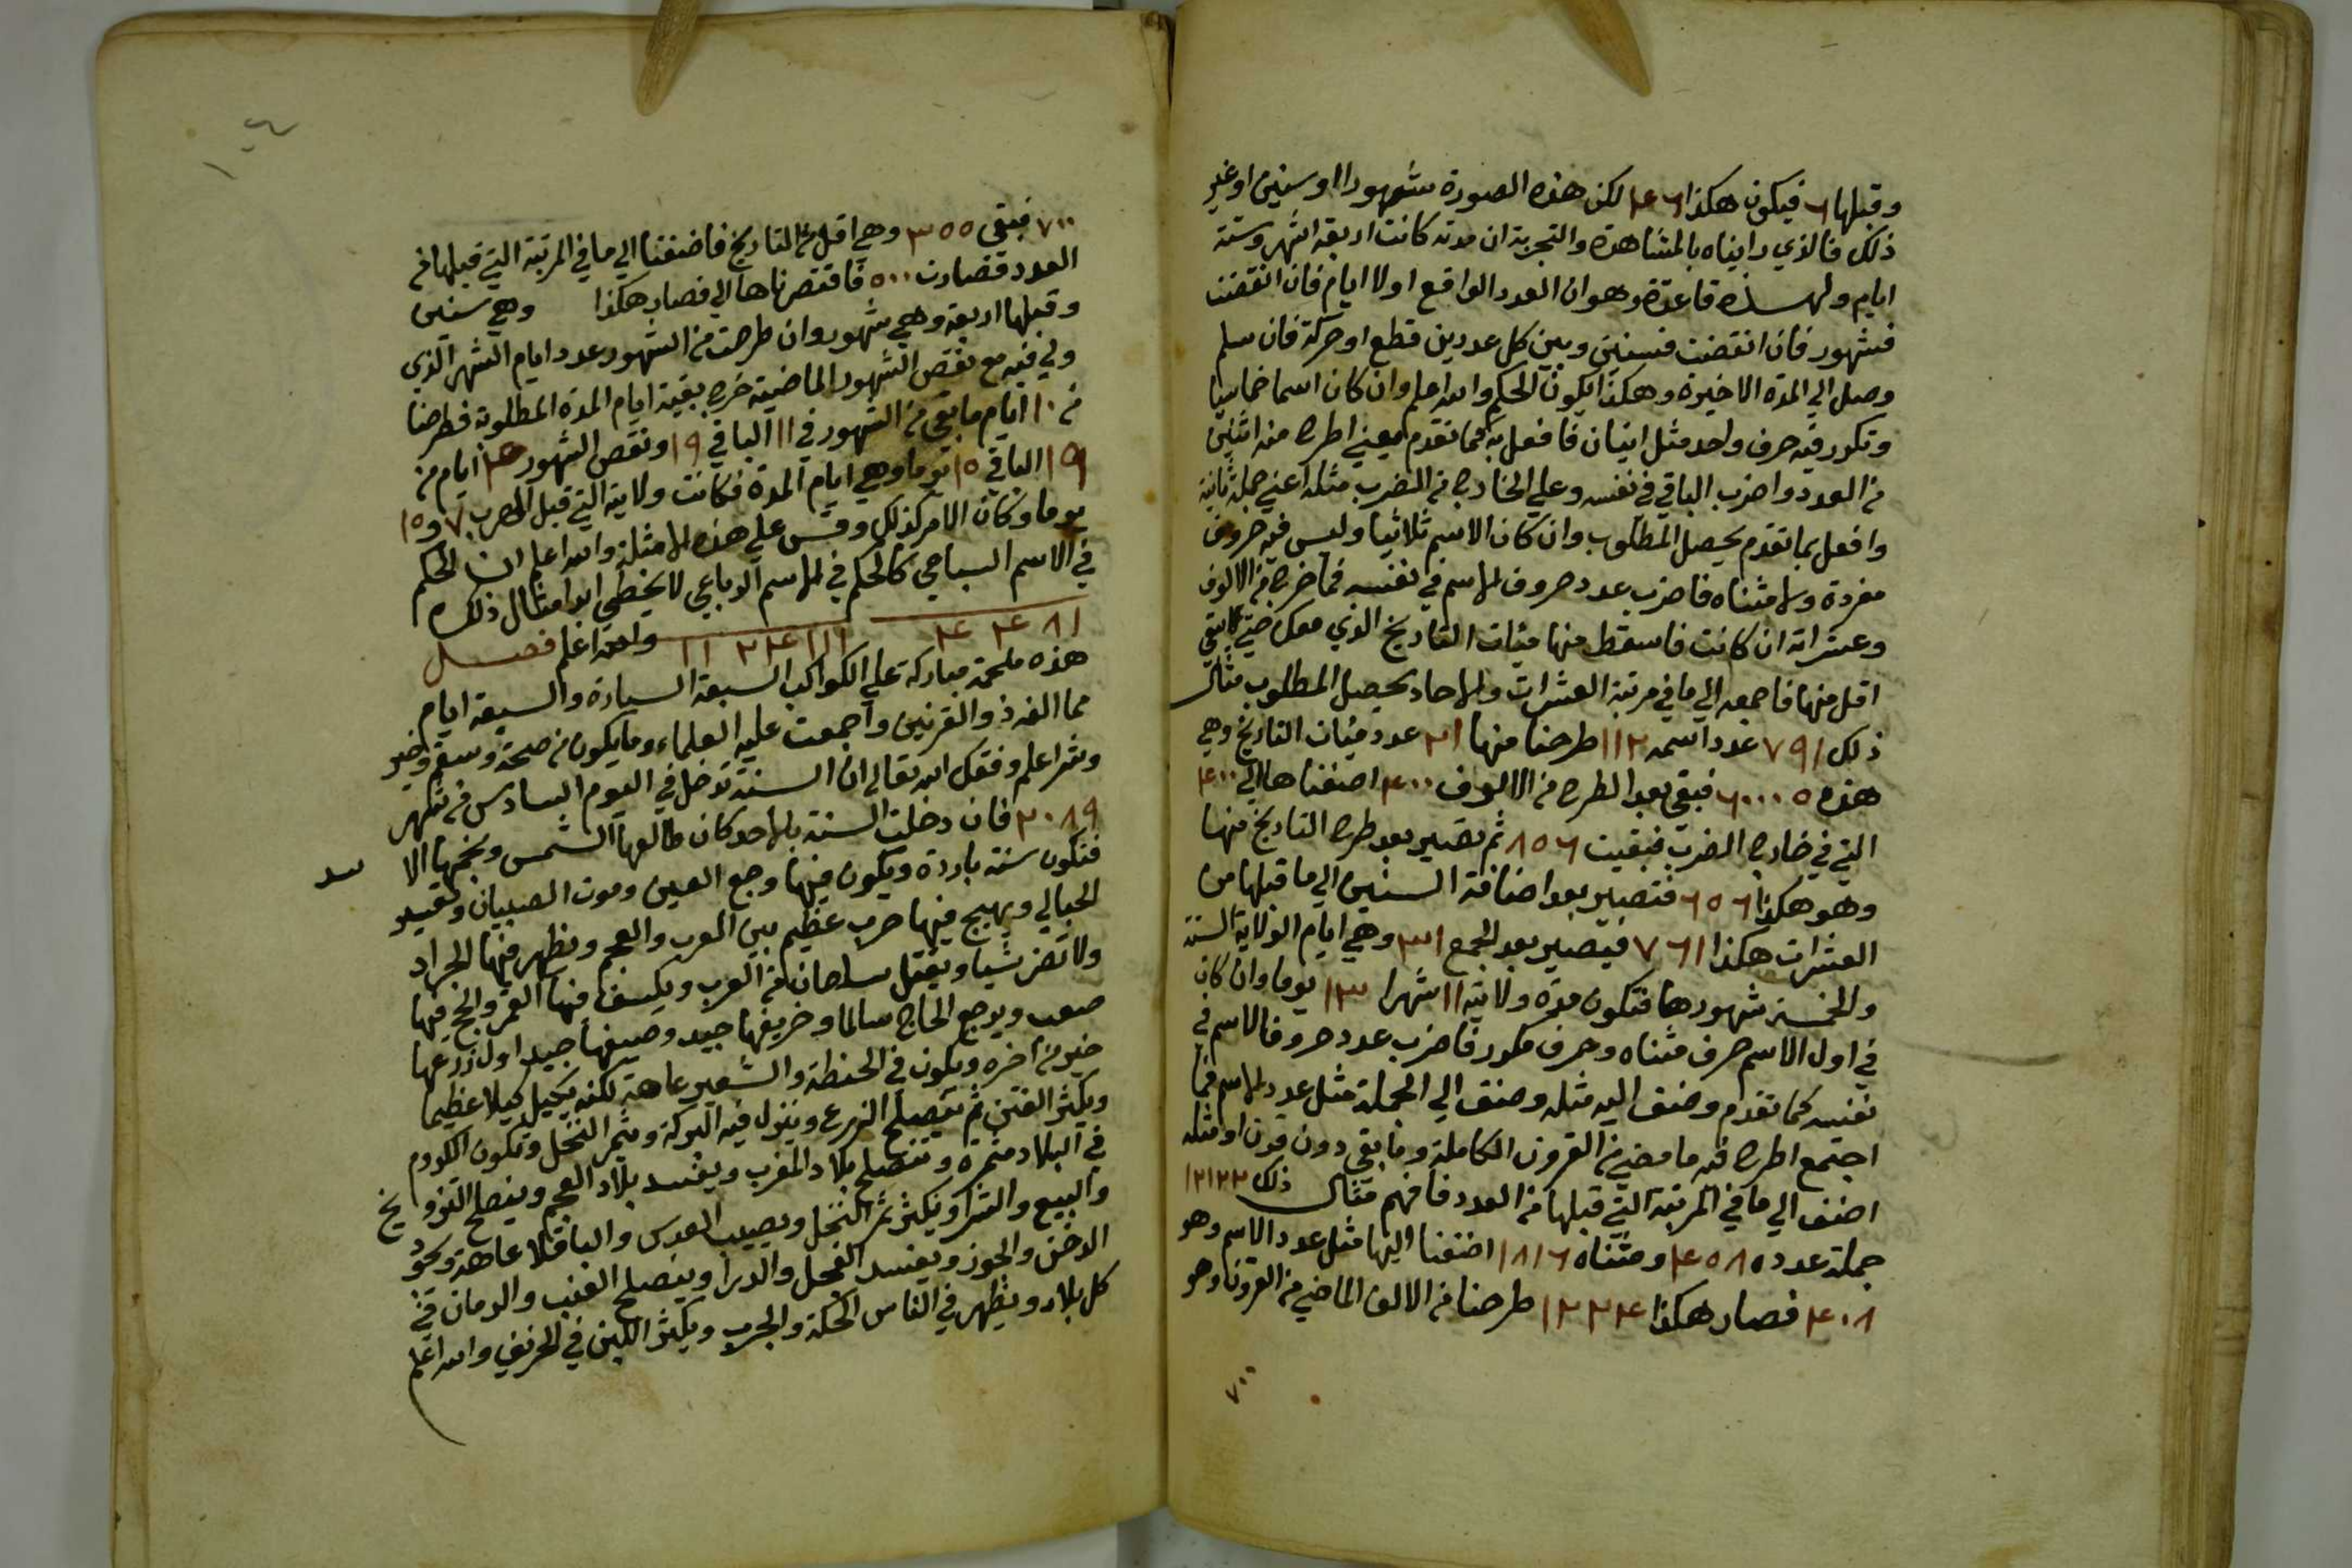 وقبلها ٦ فيكون هكذا ٤٦ لكن هذه الصورة شهورا او سنين او غير
ذلك فالذي رايناه بالمشاهدة والتجربة ان مدته كانت اربعة اشهر وستة
ايام ولهذه قاعدة وهو ان العدد الواقع اولا ايام فان انقضت
فشهور فان انقضت فسنين وبين كل عددين قطع او حركة فان سلم
وصل الي المدة الاخيرة وهكذا يكون الحكم والله اعلم وان كان اسما خماسيا
وتكرر فيه حرف واحد مثل اينان فافعل به كما تقدم يعني اطرح منه اثنين
من العدد واضرب الباقي في نفسه وعلي الخارج من الضرب مثله اعني جملة ثانية
وافعل بما تقدم يحصل المطلوب وان كان الاسم ثلاثيا وليس فيه حروف
مفردة ولا مثناه فاضرب عدد حروف الاسم في نفسه فما خرج من الالوف
وعشراته ان كانت فاسقط منها مئات التاريخ الذي معك حتي يبقي
اقل منها فاجمعه الي ما في مرتبة العشرات والاحاد يحصل المطلوب مثال
ذلك ٧٩١ عدد اسمه ١١٢ طرحنا منها ٢١ عدد مئات التاريخ وهي
هذه ٦٠٠٠٥ فبقي بعد الطرح من الالوف ٤٠٠ اضفناها الي ٤٠٠
التي في خارج الضرب فبقيت ٨٥٦ ثم تصير بعد طرح التاريخ منها
وهو هكذا ٦٥٦ فتصير بعد اضافة السنين الي ما قبلها من
العشرات هكذا ٧٦١ فيصير بعد الجمع ٣١ وهي ايام الولاية السنة
والخمسة شهورها فتكون مدة ولايته ١١ شهرا ١٣ يوما وان كان
في اول الاسم حرف مثناه وحرف مكرر فاضرب عدد حروف الاسم في
نفسه كما تقدم وضف اليه مثله وضف الي الجملة مثل عدد الاسم فما
اجتمع اطرح منه ما مضي من القرون الكاملة وما بقي دون قرن او مثله
اضف الي ما في المرتبة التي قبلها من العدد فافهم مثال ذلك ١٢١٢٣
جملة عدده ٤٥٨ ومثناه ١٨١٦ اضفنا اليها مثل عدد الاسم وهو
٤٠٨ فصار هكذا ١٢٢٤ طرحنا من الالف الماضي من القرون وهو
٧٠٠
٧٠٠ فبقي ٣٥٥ وهي اقل من التاريخ فاضفنا الي ما في المرتبة التي قبلها من
العدد فصارت ٥٠٠ فاقتصرناها الي فصار هكذا وهي سنين
وقبلها اربعة وهي شهور وان طرحت من الشهور عدد ايام الشهر الذي
ولي فيه مع نقص الشهور الماضية خرج بقية ايام المدة المطلوبة فطرحنا
من ١٠ ايام ما بقي من الشهور في ١١ الباقي ١٩ ونقص الشهور ٤ ايام من
١٩ الباقي ١٥ يوما وهي ايام المدة فكانت ولايته التي قبل الضرب ٧ و ١٥
يوما وكان الامر كذلك وقس علي هذه الامثلة والله اعلم ان الحكم
في الاسم السباعي كالحكم في الاسم الرباعي لا يخطي ابدا مثال ذلك
٨١ ٤ ٤ ١١١ ٢٤ ٢ ١١ والله اعلم فصل
هذه ملحمة مباركة علي الكواكب السبعة السيارة والسبعة ايام
مما الفه ذو القرنين واجمعت عليه العلماء وما يكون من صحة وسقم وخير
وشر اعلم وفقك الله تعالي ان السنة تدخل في اليوم السادس من شهر
٢٠٨٩ فان دخلت السنة بالاحد كان طالعها الشمس ونجمها الا سد
فتكون سنة باردة ويكون فيها وجع العين وموت الصبيان وتفسد
الحبالي ويهيج فيها حرب عظيم بين العرب والعجم ويظهر فيها الجراد
ولا تضر شيا ويقتل سلطان من العرب ويكسف فيها القمر والحج فيها
صعب ويرجع الحاج سالما وخريفها جيد وصيفها جيد اول زرعها
خير من اخره ويكون في الحنطة والشعير عاهة لكنه يكيل كيلا عظيما
ويكثر الفتن ثم تصلح الزرع وينزل فيه البركة ويثمر النخل وتكون الكروم
في البلاد مثمرة وتصلح بلاد المغرب ويفسد بلاد العجم ويصلح التزويج
والبيع والشرا ويكثر ثمر النخل ويصيب العدس والباقلا عاهة ويجود
الدخن والجوز ويفسد الفجل والدرا ويصلح العنب والرمان في
كل بلاد ويظهر في الناس الحكة والجرب ويكثر اللبن في الخريف والله اعلم